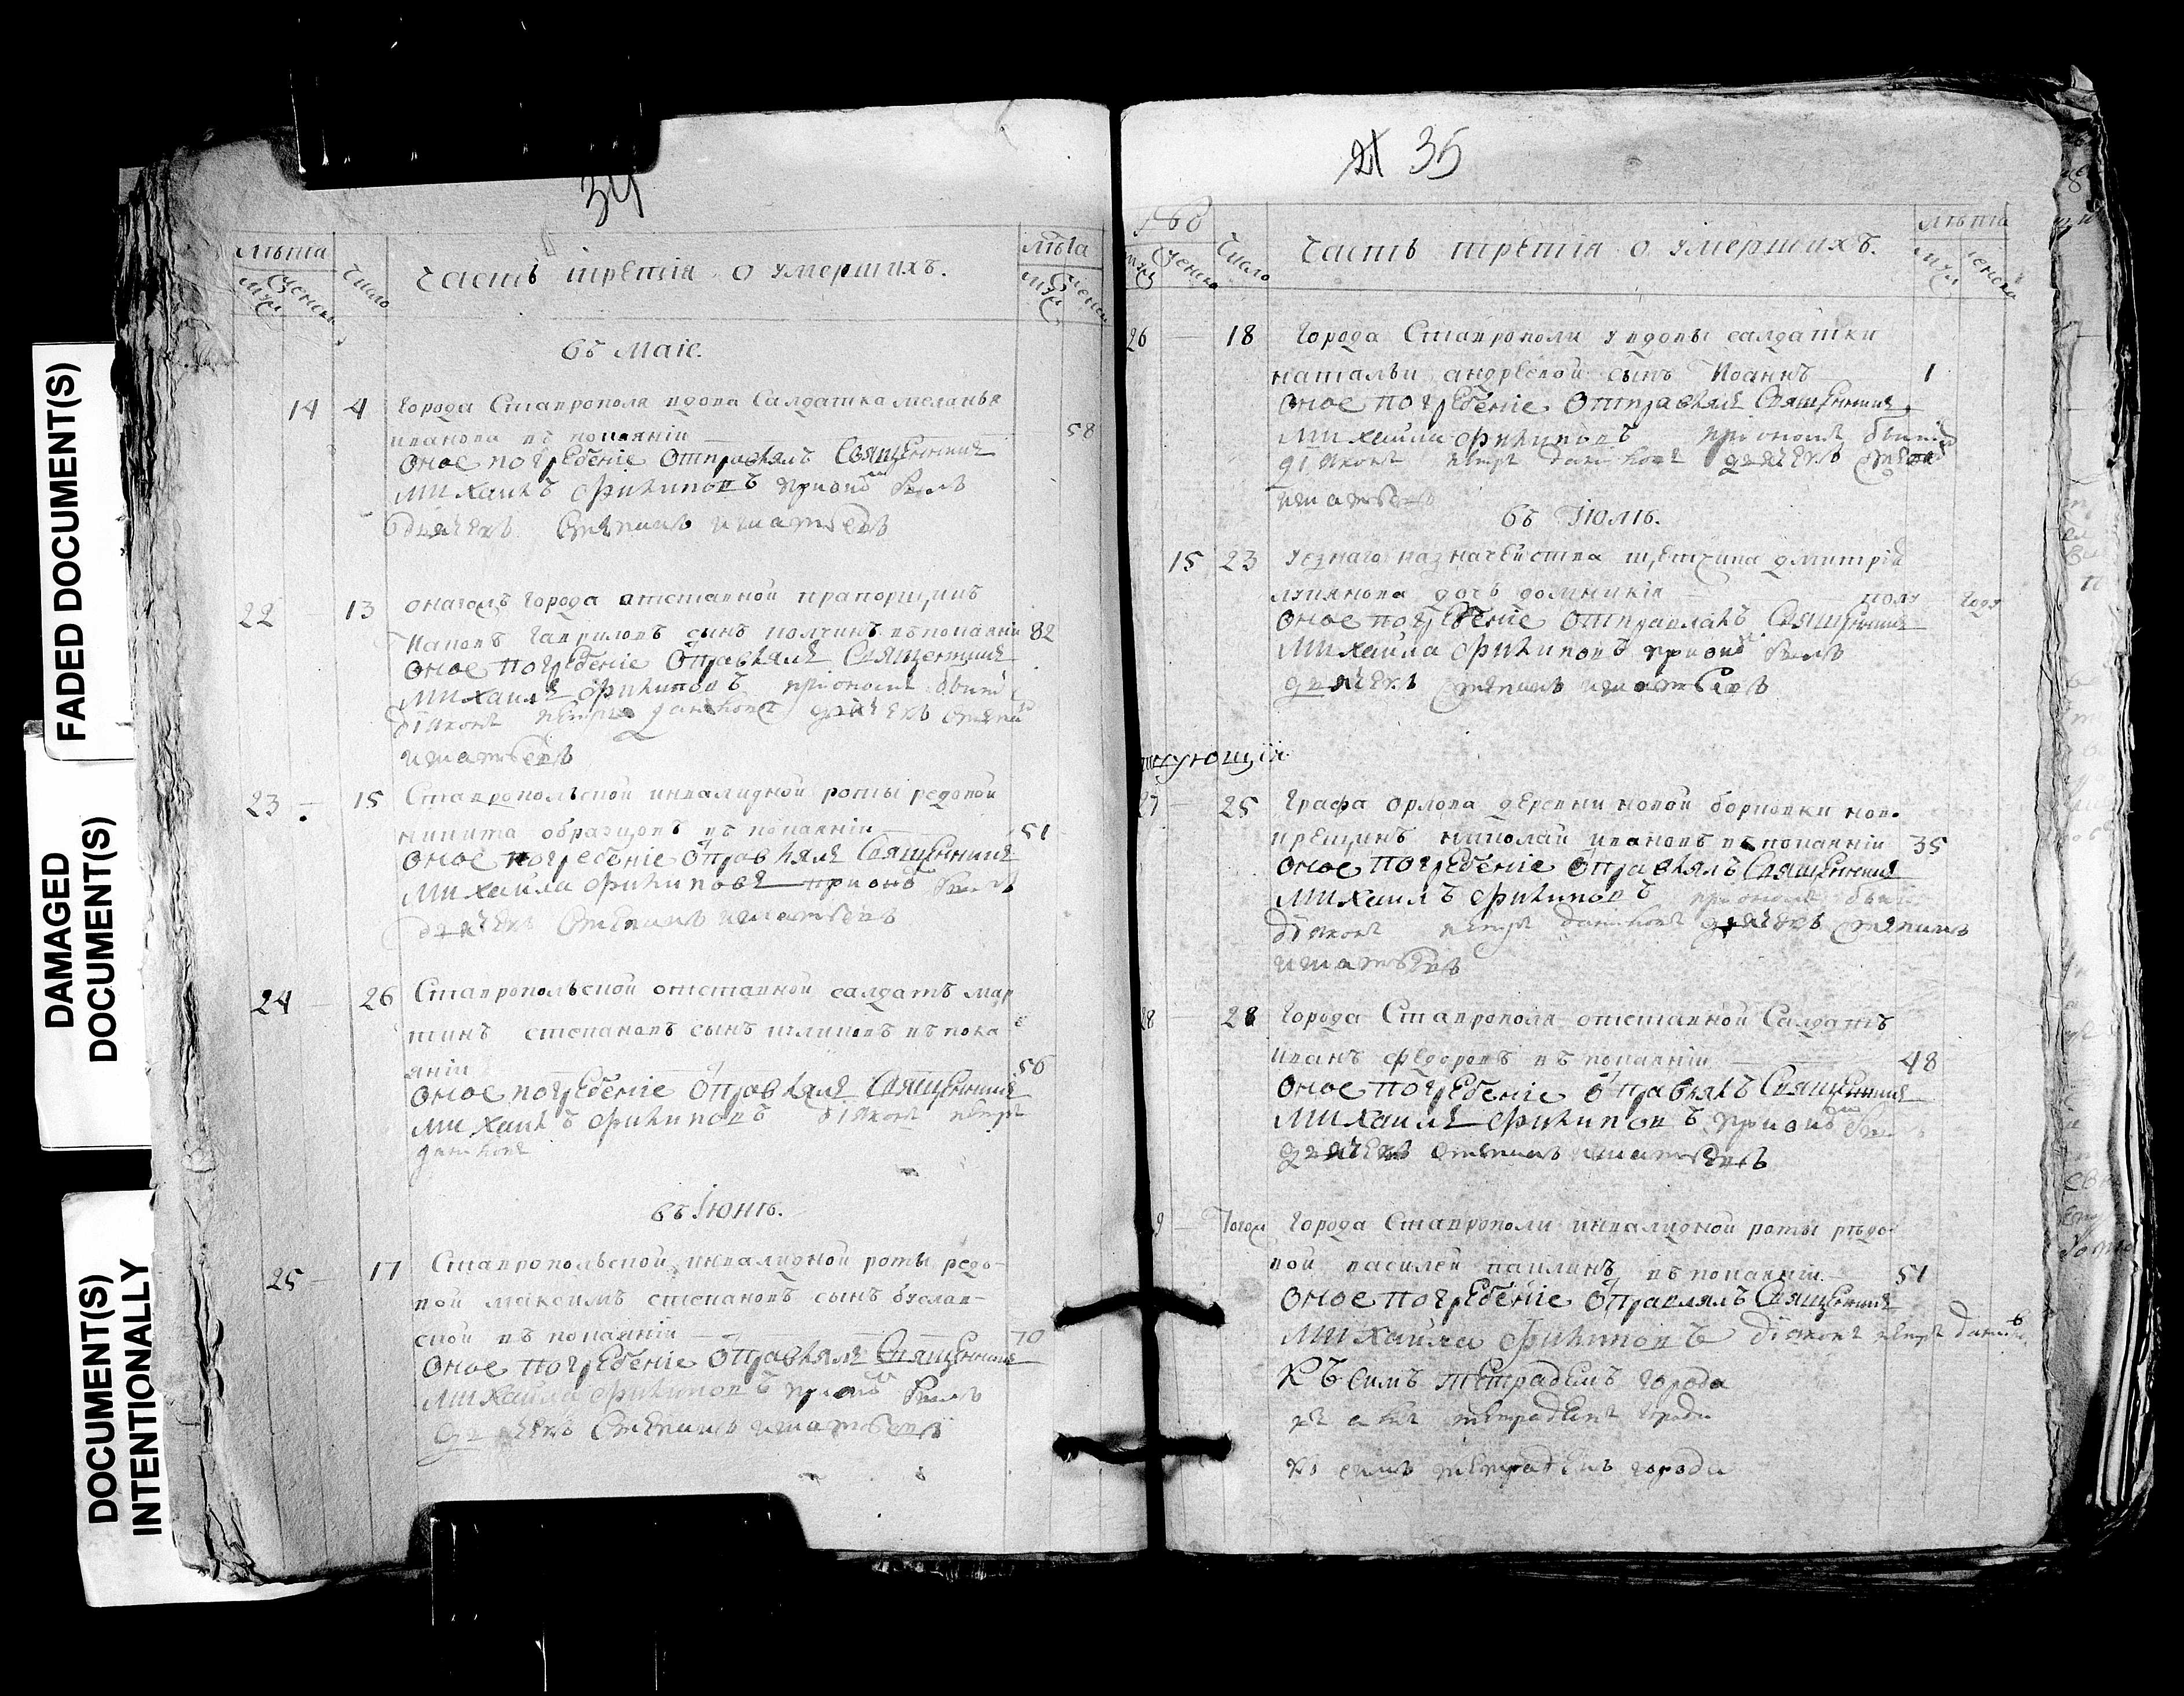 FADED DOCUMENT(S)
DAMAGED
DOCUMENT(S)
DOCUMENT(S)
INTENTIONALLY
34
лѣта
муж
женск
число
Часть третія о умершихъ.
лѣта
муж
женск
въ Маіе.
14 4 города Ставрополя вдова Салдатка меланья
иванова въ покаяніи 58
оное погребеніе отправлялъ Священникъ
михаилъ филиповъ
дьячекъ Степанъ игнатьевъ
22 13 города отставной прапорщикъ
Гавриловъ сынъ въ покаяніи 82
оное погребеніе отправлялъ Священникъ
михаилъ филиповъ при ономъ былъ
діаконъ петръ даниловъ дьячекъ степанъ
игнатьевъ
23 15 Ставропольской инвалидной роты редовой
никита образцовъ въ покаяніи 51
оное погребеніе отправлялъ Священникъ
михайла филиповъ при ономъ былъ
дьячекъ Степанъ игнатьевъ
24 26 Ставропольской отставной салдатъ мар
тинъ степановъ сынъ въ пока
яніи 56
оное погребеніе отправлялъ Священникъ
михаилъ филиповъ діаконъ петръ
даниловъ
въ Іюнѣ.
25 17 Ставропольской инвалидной роты редо-
вой максимъ степановъ сынъ буслав-
ской въ покаяніи 70
оное погребеніе отправлялъ Священникъ
михайла филиповъ при ономъ былъ
дьячекъ Степанъ игнатьевъ
21 35
число
Часть третія о умершихъ.
лѣта
муж
женск
26 18 города Ставрополи у вдовы салдатки
натальи андреевой сынъ Иоаннъ 1
оное погребеніе отправлялъ Священникъ
михайла филиповъ при ономъ были
діаконъ петръ даниловъ дьячекъ степанъ
игнатьевъ
въ Іюлѣ.
15 23 уезнаго казначейства дмитрія
дочь доминикія полу году
оное погребеніе отправлялъ Священникъ
михайла филиповъ при ономъ былъ
дьячекъ степанъ игнатьевъ
27 25 графа орлова деревни новой борковки нов.
крещинъ николай ивановъ въ покаяніи 35
оное погребеніе отправлялъ Священникъ
михаилъ филиповъ при ономъ были
діаконъ петръ даниловъ дьячекъ степанъ
игнатьевъ
28 28 города Ставрополя отставной Салдатъ
иванъ федоровъ въ покаяніи 48
оное погребеніе отправлялъ Священникъ
михаилъ филиповъ при ономъ
дьячекъ степанъ игнатьевъ
9 города Ставрополи инвалидной роты рѣдо
вой василей павлинъ въ покаяніи 51
оное погребеніе отправлялъ Священникъ
михайла филиповъ діаконъ петръ даниловъ
Къ симъ тетрадемъ города
къ симъ тетрадемъ города
къ симъ тетрадемъ города